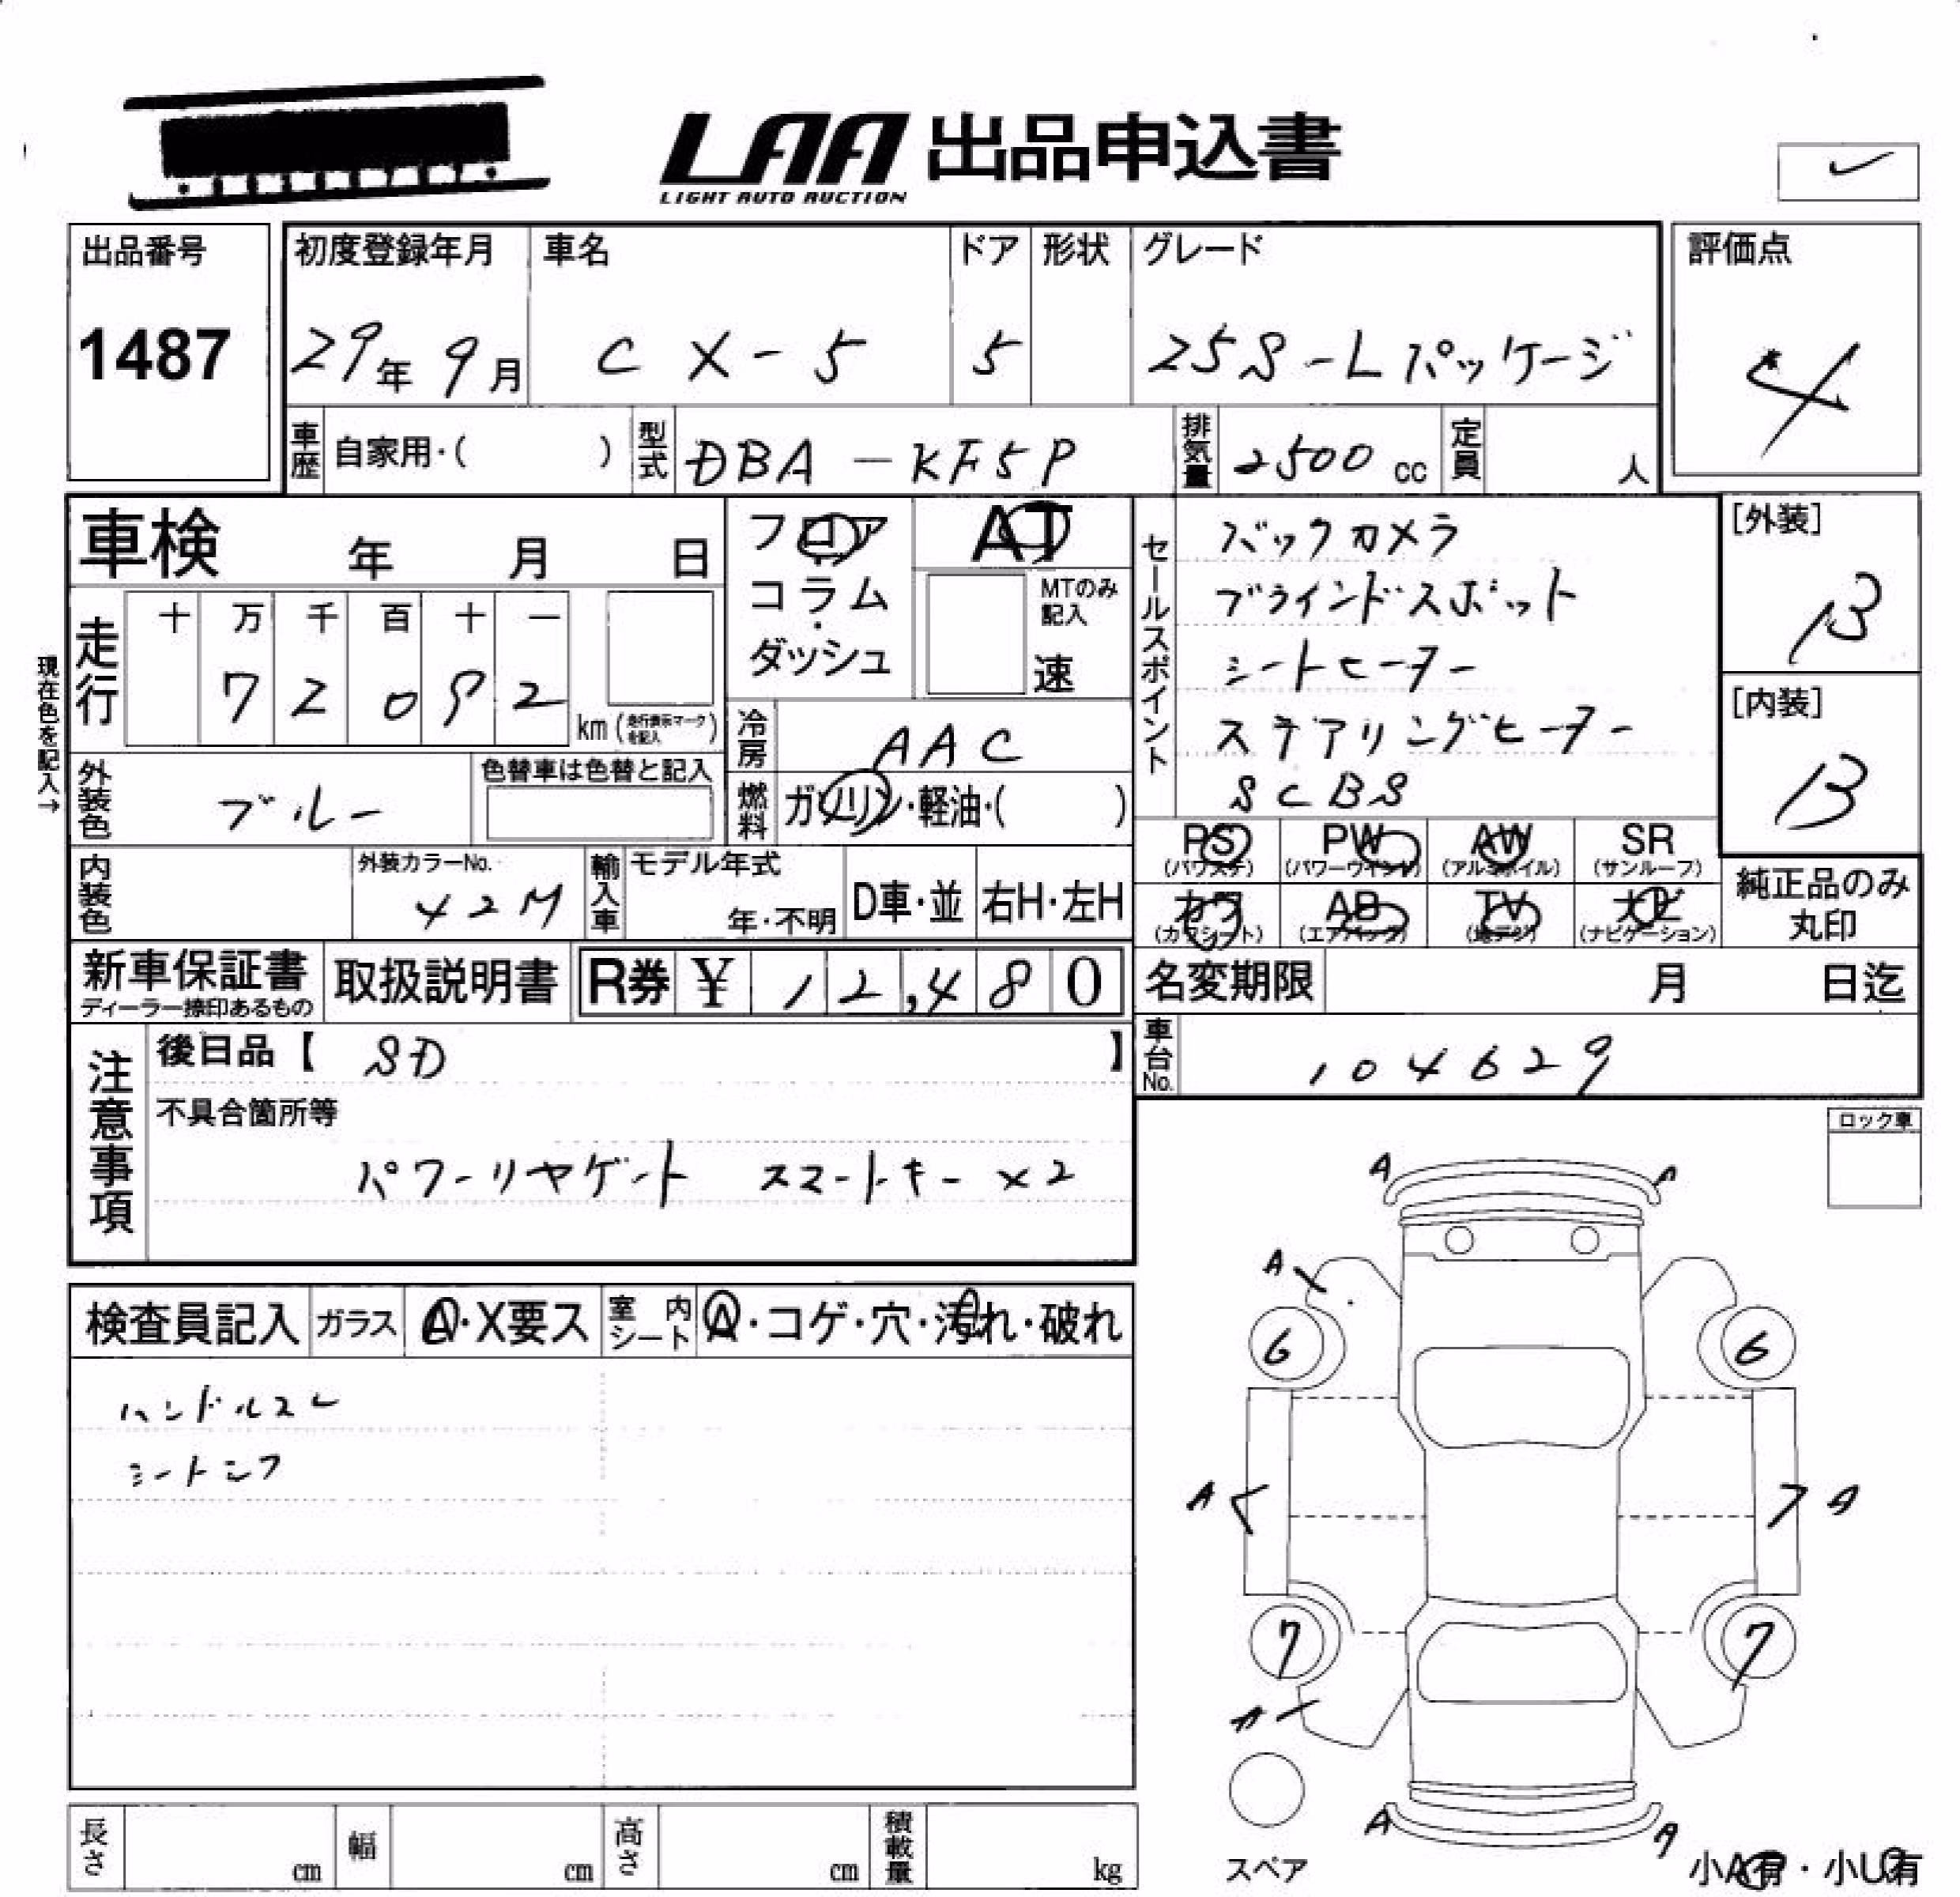 LAA 出品申込書
LIGHT AUTO AUCTION
出品番号
1487
初度登録年月 車名 ドア 形状 グレード
29年 9月 CX-5 5 25S-Lパッケージ
評価点
4
車歴 自家用・( ) 型式 DBA-KF5P 排気量 2500cc 定員 人
車検 年 月 日
フロア・コラム・ダッシュ
AT
MTのみ記入
速
セールスポイント
バックカメラ
ブラインドスポット
シートヒーター
ステアリングヒーター
SCBS
[外装]
B
[内装]
B
現在色を記入→
走行 十 万 千 百 十 一
7 2 0 9 2 km (走行表示マークを記入)
冷房 AAC
外装色 ブルー 色替車は色替と記入
燃料 ガソリン・軽油・( )
PS PW AW SR
(パワステ) (パワーウインド) (アルミホイル) (サンルーフ)
カワ AB TV ナビ
(カワシート) (エアバッグ) (地デジ) (ナビゲーション)
純正品のみ
丸印
内装色 外装カラーNo. 42M 輸入車 モデル年式 年・不明 D車・並 右H・左H
新車保証書 取扱説明書 R券 ¥ 12,480
ディーラー捺印あるもの
名変期限 月 日迄
車台No. 104629
注意事項
後日品【 SD 】
不具合箇所等
パワーリヤゲート スマートキー×2
ロック車
検査員記入 ガラス A・X要ス 室内シート A・コゲ・穴・汚れ・破れ
ハンドルスレ
シートシワ
A A
A
6 6
A A
7 7
A
A A
スペア
小A有・小U有
長さ cm 幅 cm 高さ cm 積載量 kg